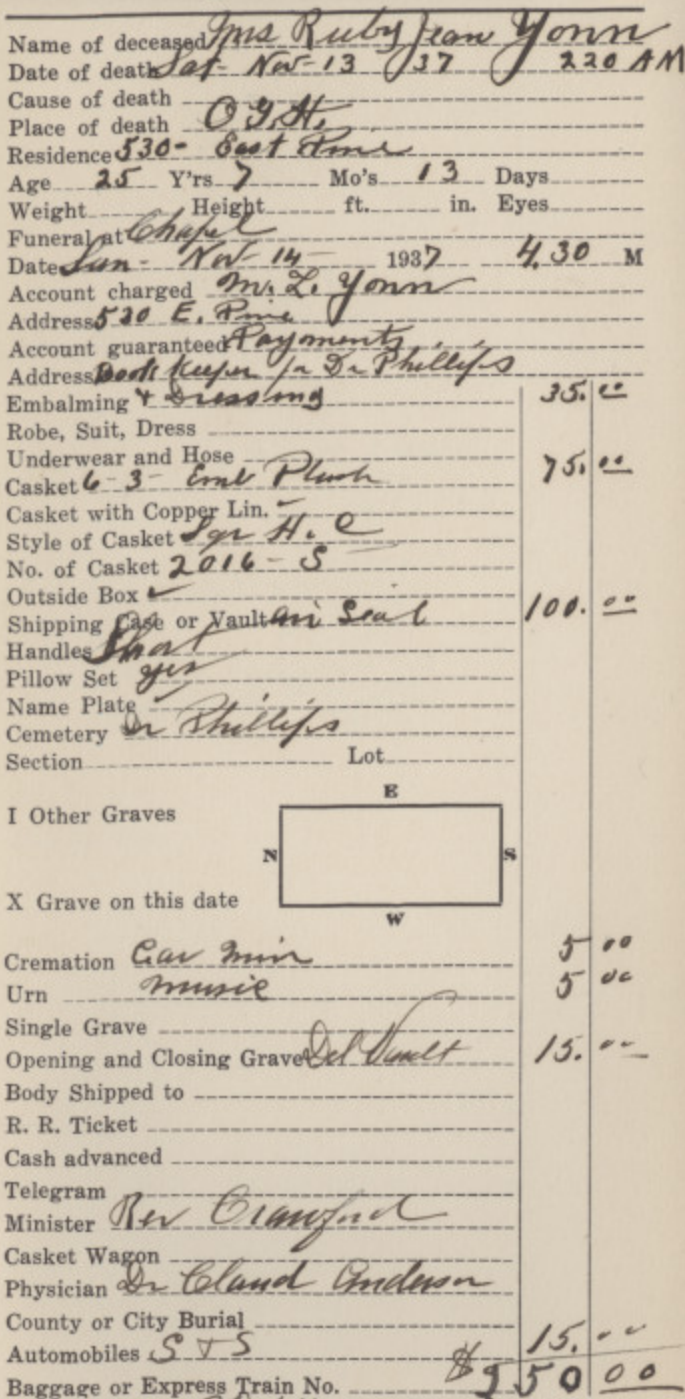 Name of deceased Mrs Ruby Jean Yonn
Date of death Sat- Nov-13 37 2 20 AM
Cause of death
Place of death O.G.H.
Residence 530- East Pine
Age 25 Y'rs 7 Mo's 13 Days
Weight Height ft. in. Eyes
Funeral at Chapel
Date Sun- Nov-14- 1937 4.30 M
Account charged M. L. Yonn
Address 530 E. Pine
Account guaranteed Payments
Address Book Keeper for Dr Phillips
Embalming & Dressing 35.00
Robe, Suit, Dress
Underwear and Hose
Casket 6-3- Emb Plush 75.00
Casket with Copper Lin.
Style of Casket Sqr H. C
No. of Casket 2016-S
Outside Box
Shipping Case or Vault Air Seal 100.00
Handles Short
Pillow Set yes
Name Plate
Cemetery Dr Phillips
Section Lot
E
I Other Graves
N S
X Grave on this date
W
Cremation Car Min 5 00
Urn music 5 00
Single Grave
Opening and Closing Grave Del Vault 15.00
Body Shipped to
R. R. Ticket
Cash advanced
Telegram
Minister Rev Crawford
Casket Wagon
Physician Dr Claud Anderson
County or City Burial
Automobiles S & S 15.00
Baggage or Express Train No. $ 00